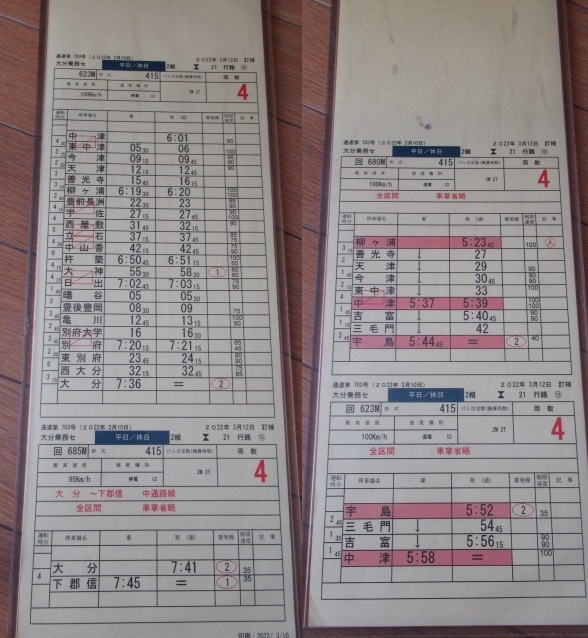 通達第 703号（2022年 2月10日） 2022年 3月12日 訂補
大分乗務セ 平日/休日 2組 21 行路
623M 形式 415 けん引定数(換算両数) 両数
最高速度 速度種別
100Km/h 停電 2M 2T 4
運転時分 停車場名 着 発（通） 着発線 制限速度 記事
中津 6:01
東中津 05 30 06
今津 09 15 09 45
天津 12 15 12 45
善光寺 15 45 16 15
柳ヶ浦 6:19 15 6:20
豊前長洲 22 30 23
宇佐 27 15 27 45
西屋敷 31 45 32 15
立石 37 15 37 45
中山香 42 15 42 45
杵築 6:50 45 6:51 15
大神 55 30 58 30 1
日出 7:02 15 7:03 15
暘谷 05 05 30
豊後豊岡 08 30 09
亀川 12 45 13 15
別府大学 16 16 30
別府 7:20 15 7:21 15
東別府 23 45 24 15
西大分 32 15 32 45
大分 7:36 = 2
通達第 703号（2022年 2月10日） 2022年 3月12日 訂補
大分乗務セ 平日/休日 2組 21 行路
回 685M 形式 415 けん引定数(換算両数) 両数
最高速度 速度種別
95Km/h 停電 2M 2T 4
大分 ～下郡信 中通路線
全区間 車掌省略
運転時分 停車場名 着 発（通） 着発線 制限速度 記事
大分 7:41 2 35
4 下郡信 7:45 = 1 35
印刷 2022/ 3/10
通達第 703号（2022年 2月10日） 2022年 3月12日 訂補
大分乗務セ 平日/休日 2組 21 行路
回 680M 形式 415 けん引定数(換算両数) 両数
最高速度 速度種別
100Km/h 2M 2T 4
全区間 車掌省略
運転時分 停車場名 着 発（通） 着発線 制限速度 記事
柳ヶ浦 5:23 45 100 入
善光寺 ↓ 27
天津 ↓ 29
今津 ↓ 30 45
東中津 ↓ 33
中津 5:37 5:39
吉富 ↓ 5:40 45
三毛門 ↓ 42
宇島 5:44 45 = 2 40
通達第 703号（2022年 2月10日） 2022年 3月12日 訂補
大分乗務セ 平日/休日 2組 21 行路
回 623M 形式 415 けん引定数(換算両数) 両数
最高速度 速度種別
100Km/h 2M 2T 4
全区間 車掌省略
運転時分 停車場名 着 発（通） 着発線 制限速度 記事
宇島 5:52 2 35
三毛門 ↓ 54 45
吉富 ↓ 5:56 15
中津 5:58 =